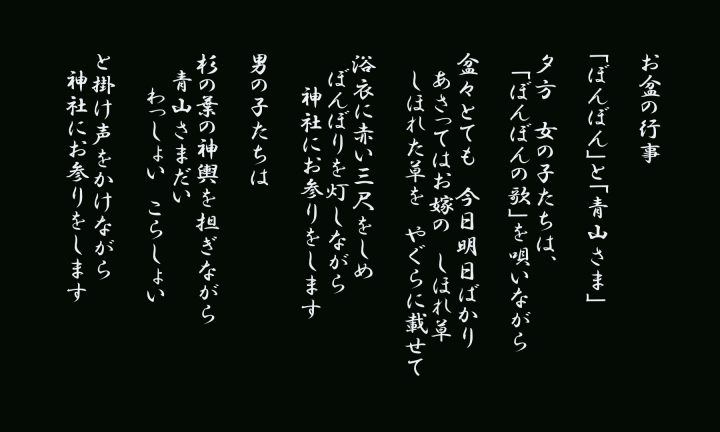 お盆の行事
「ぼんぼん」と「青山さま」
夕方　女の子たちは、
「ぼんぼんの歌」を唄いながら
盆々とても　今日明日ばかり
あさってはお嫁の　しほれ草
しほれた草を　やぐらに載せて
浴衣に赤い三尺をしめ
ぼんぼりを灯しながら
神社にお参りをします
男の子たちは
杉の葉の神輿を担ぎながら
青山さまだい
わっしょい　こらしょい
と掛け声をかけながら
神社にお参りをします